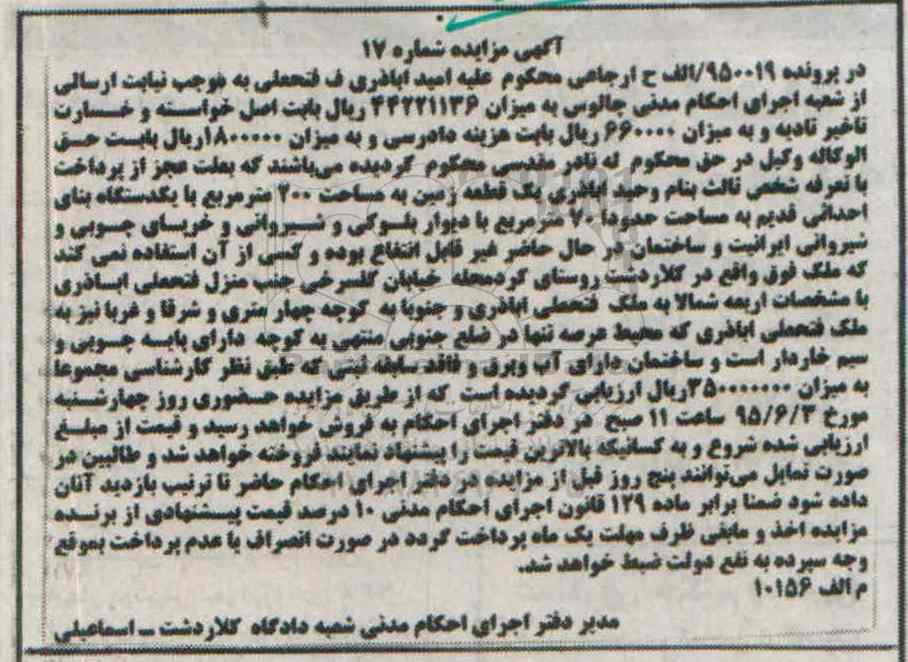 آگهی مزایده شماره ۱۷
در پرونده ۹۵۰۰۱۹/الف ح ارجاعی محکوم علیه امید اباذری ف فتحعلی به موجب نیابت ارسالی
از شعبه اجرای احکام مدنی چالوس به میزان ۴۴۲۲۱۱۳۶ ریال بابت اصل خواسته و خسارت
تاخیر تادیه و به میزان ۶۶۰۰۰۰ ریال بابت هزینه دادرسی و به میزان ۱۸۰۰۰۰۰ریال بابت حق
الوکاله وکیل در حق محکوم له نادر مقدسی محکوم گردیده می‌باشند که بعلت عجز از پرداخت
با تعرفه شخص ثالث بنام وحید اباذری یک قطعه زمین به مساحت ۲۰۰ مترمربع با یکدستگاه بنای
احداثی قدیم به مساحت حدودا ۷۰ مترمربع با دیوار بلوکی و شیروانی و خرپای چوبی و
شیروانی ایرانیت و ساختمان در حال حاضر غیر قابل انتفاع بوده و کسی از آن استفاده نمی کند
که ملک فوق واقع در کلاردشت روستای کردمحله خیابان گلسرخی جنب منزل فتحعلی اباذری
با مشخصات اربعه شمالا به ملک فتحعلی اباذری و جنوبا به کوچه چهار متری و شرقا و غربا نیز به
ملک فتحعلی اباذری که محیط عرصه تنها در ضلع جنوبی منتهی به کوچه دارای پایه چوبی و
سیم خاردار است و ساختمان دارای آب وبرق و فاقد سابقه ثبتی که طبق نظر کارشناسی مجموعا
به میزان ۳۵۰۰۰۰۰۰۰ریال ارزیابی گردیده است که از طریق مزایده حضوری روز چهارشنبه
مورخ ۹۵/۶/۳ ساعت ۱۱ صبح در دفتر اجرای احکام به فروش خواهد رسید و قیمت از مبلغ
ارزیابی شده شروع و به کسانیکه بالاترین قیمت را پیشنهاد نمایند فروخته خواهد شد و طالبین در
صورت تمایل می‌توانند پنج روز قبل از مزایده در دفتر اجرای احکام حاضر تا ترتیب بازدید آنان
داده شود ضمنا برابر ماده ۱۲۹ قانون اجرای احکام مدنی ۱۰ درصد قیمت پیشنهادی از برنده
مزایده اخذ و مابقی ظرف مهلت یک ماه پرداخت گردد در صورت انصراف یا عدم پرداخت بموقع
وجه سپرده به نفع دولت ضبط خواهد شد.
م الف ۱۰۱۵۶
مدیر دفتر اجرای احکام مدنی شعبه دادگاه کلاردشت – اسماعیلی